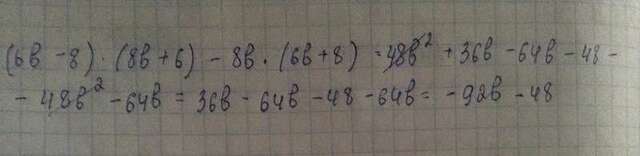 (6в - 8) · (8в + 6) - 8в · (6в + 8) = 48в² + 36в - 64в - 48 -
- 48в² - 64в = 36в - 64в - 48 - 64в = - 92в - 48